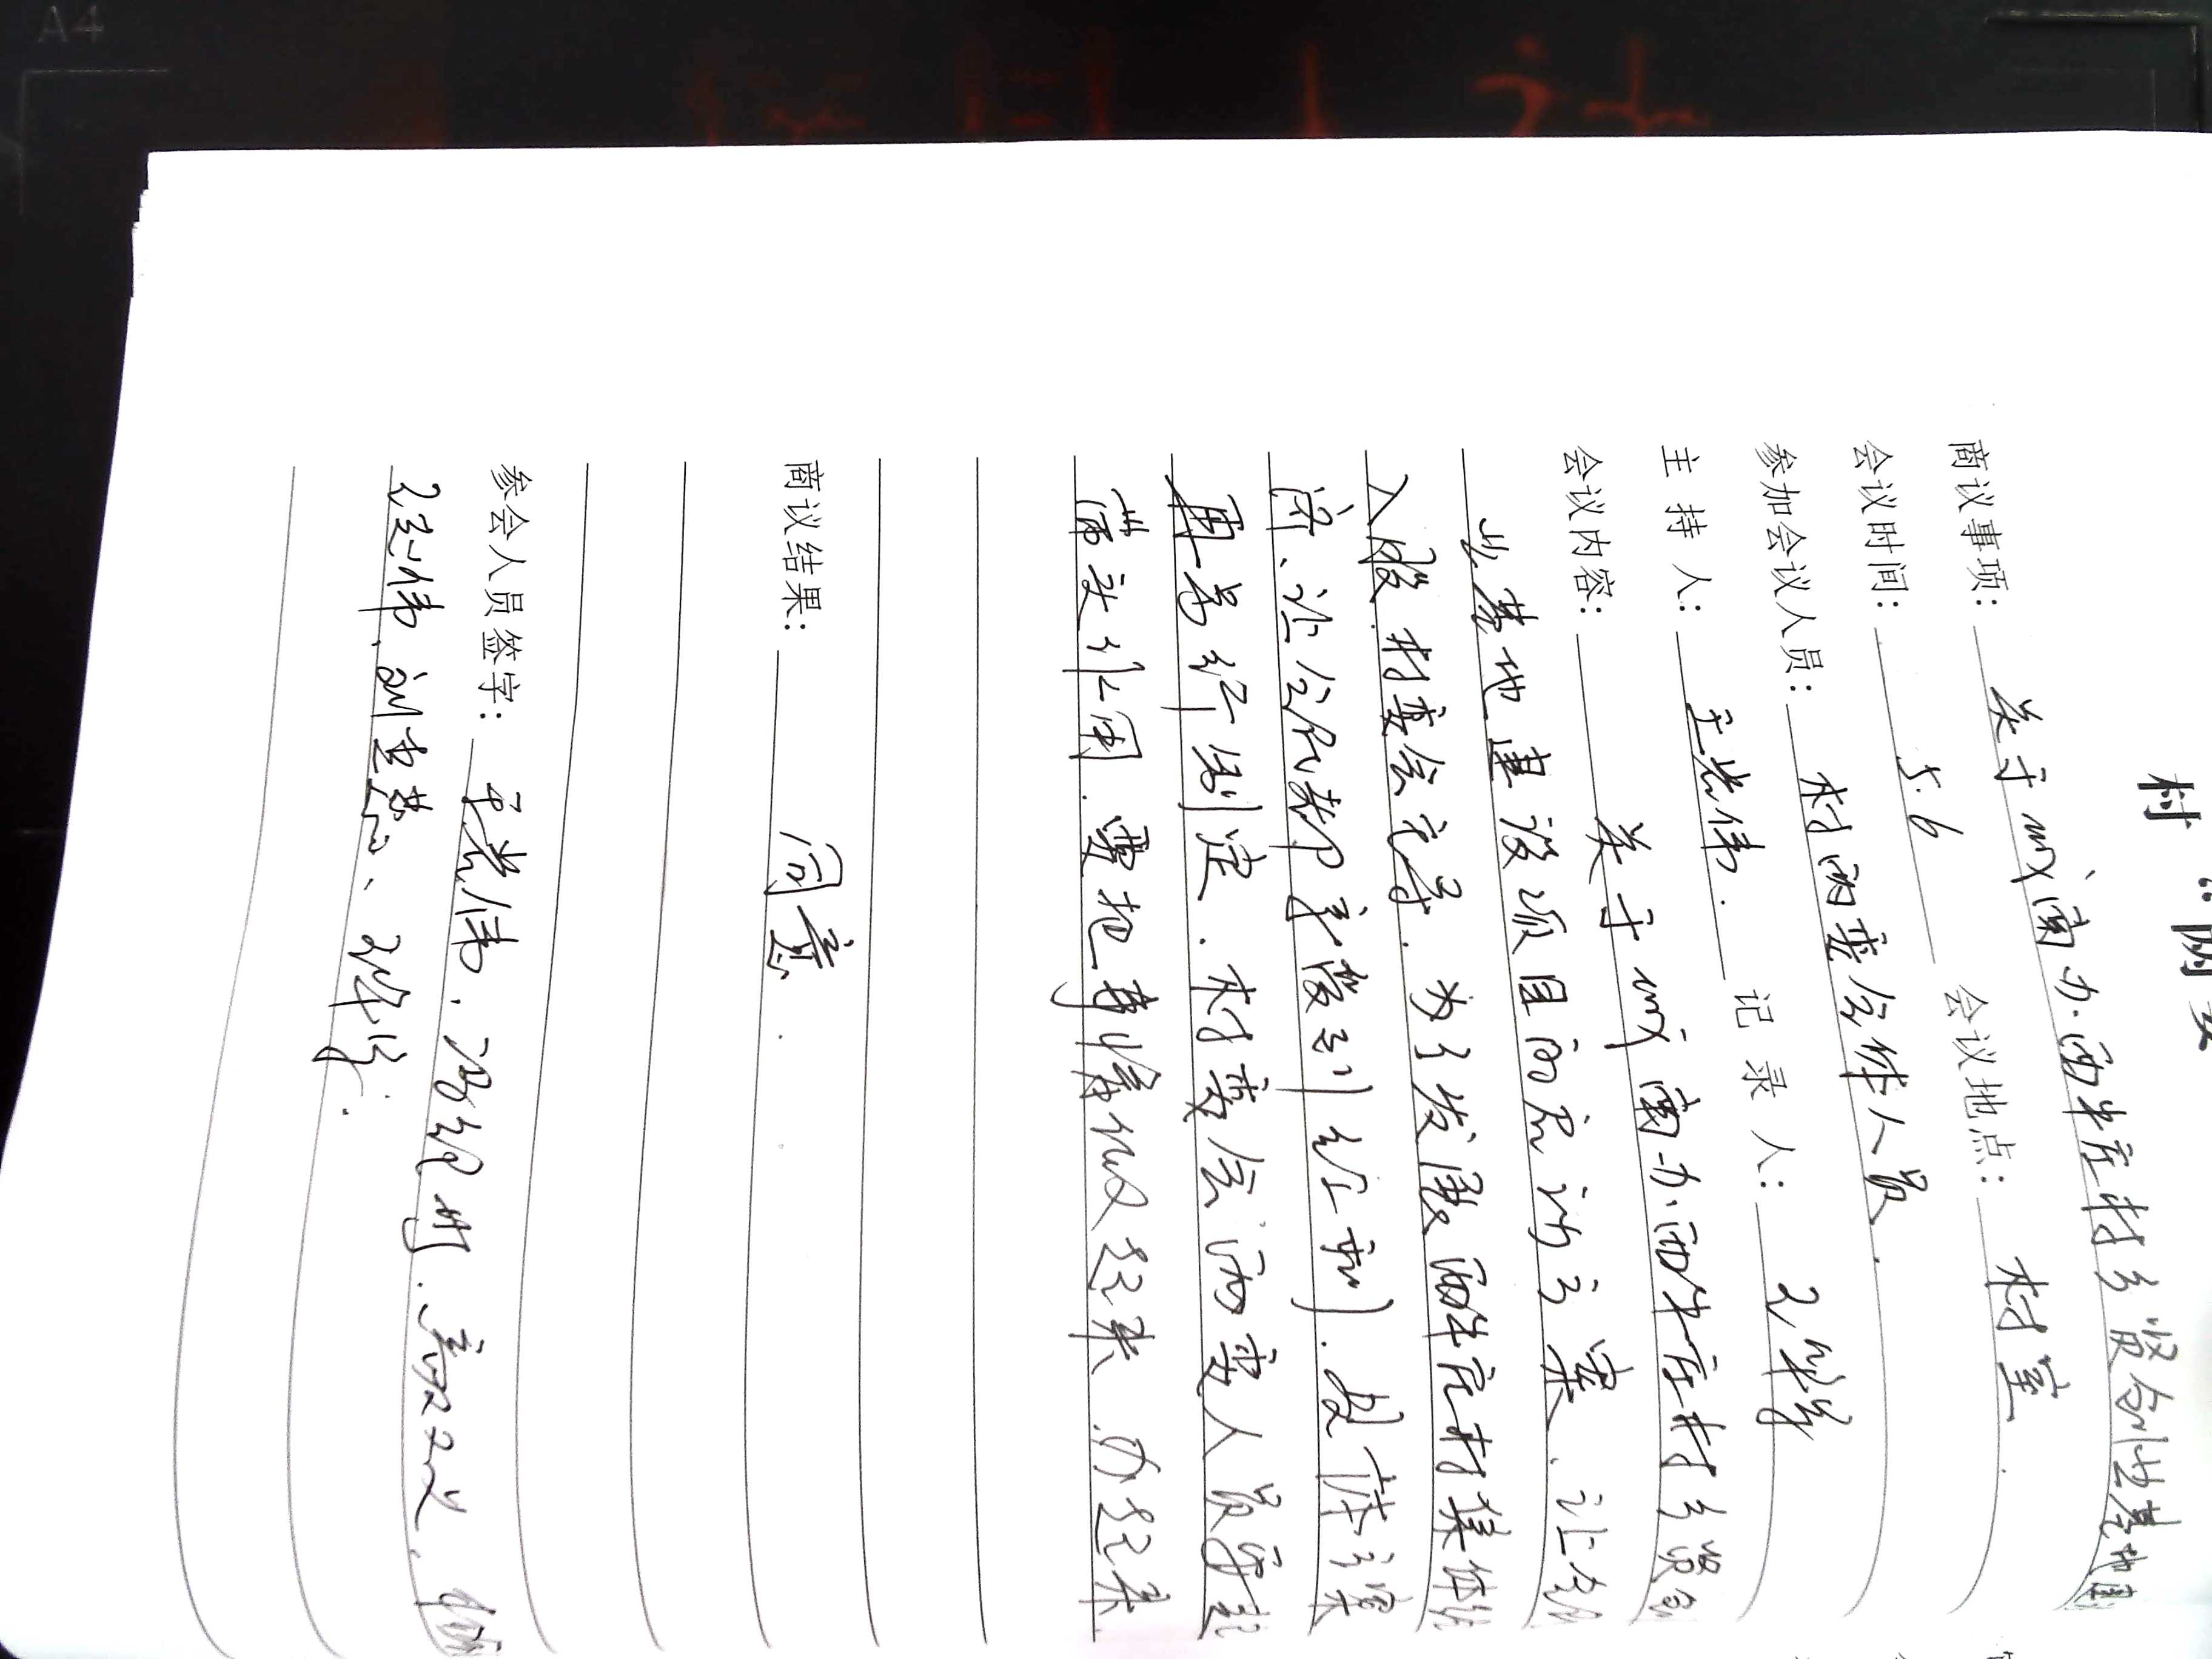 村 “两委
商议事项: 关于城南办西牛庄村乡贤创业基地建
会议时间: 5.6 会议地点: 村室.
参加会议人员: 村两委全体人员.
主持人: 王岩伟. 记录人: 王华宇
会议内容: 关于城南办西牛庄村乡贤创
业基地建设项目的启动方案、让
入股.村委会主导.为了发展西牛庄村集体经
济、让全民都享受到红利.具体方案
再另行制定.村委会两委人员要起
带头作用.要把事情做起来.办起来.
商议结果: 同意.
参会人员签字: 王岩伟.冯纪
伟、刘、王华宇.